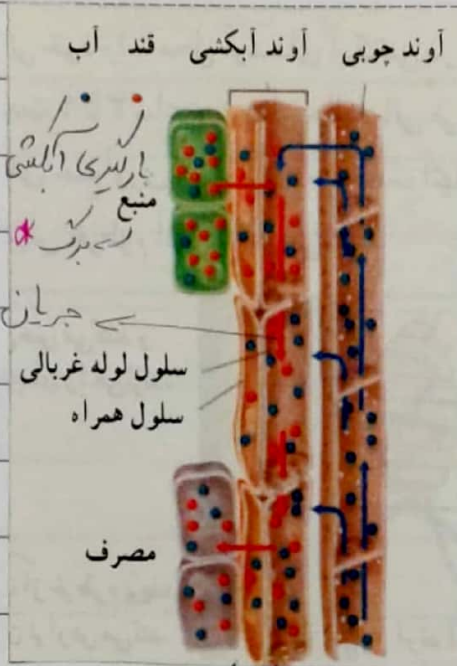 آوند چوبی آوند آبکشی قند آب
بارگیری آبکشی
منبع
برگ
جریان
سلول لوله غربالی
سلول همراه
مصرف